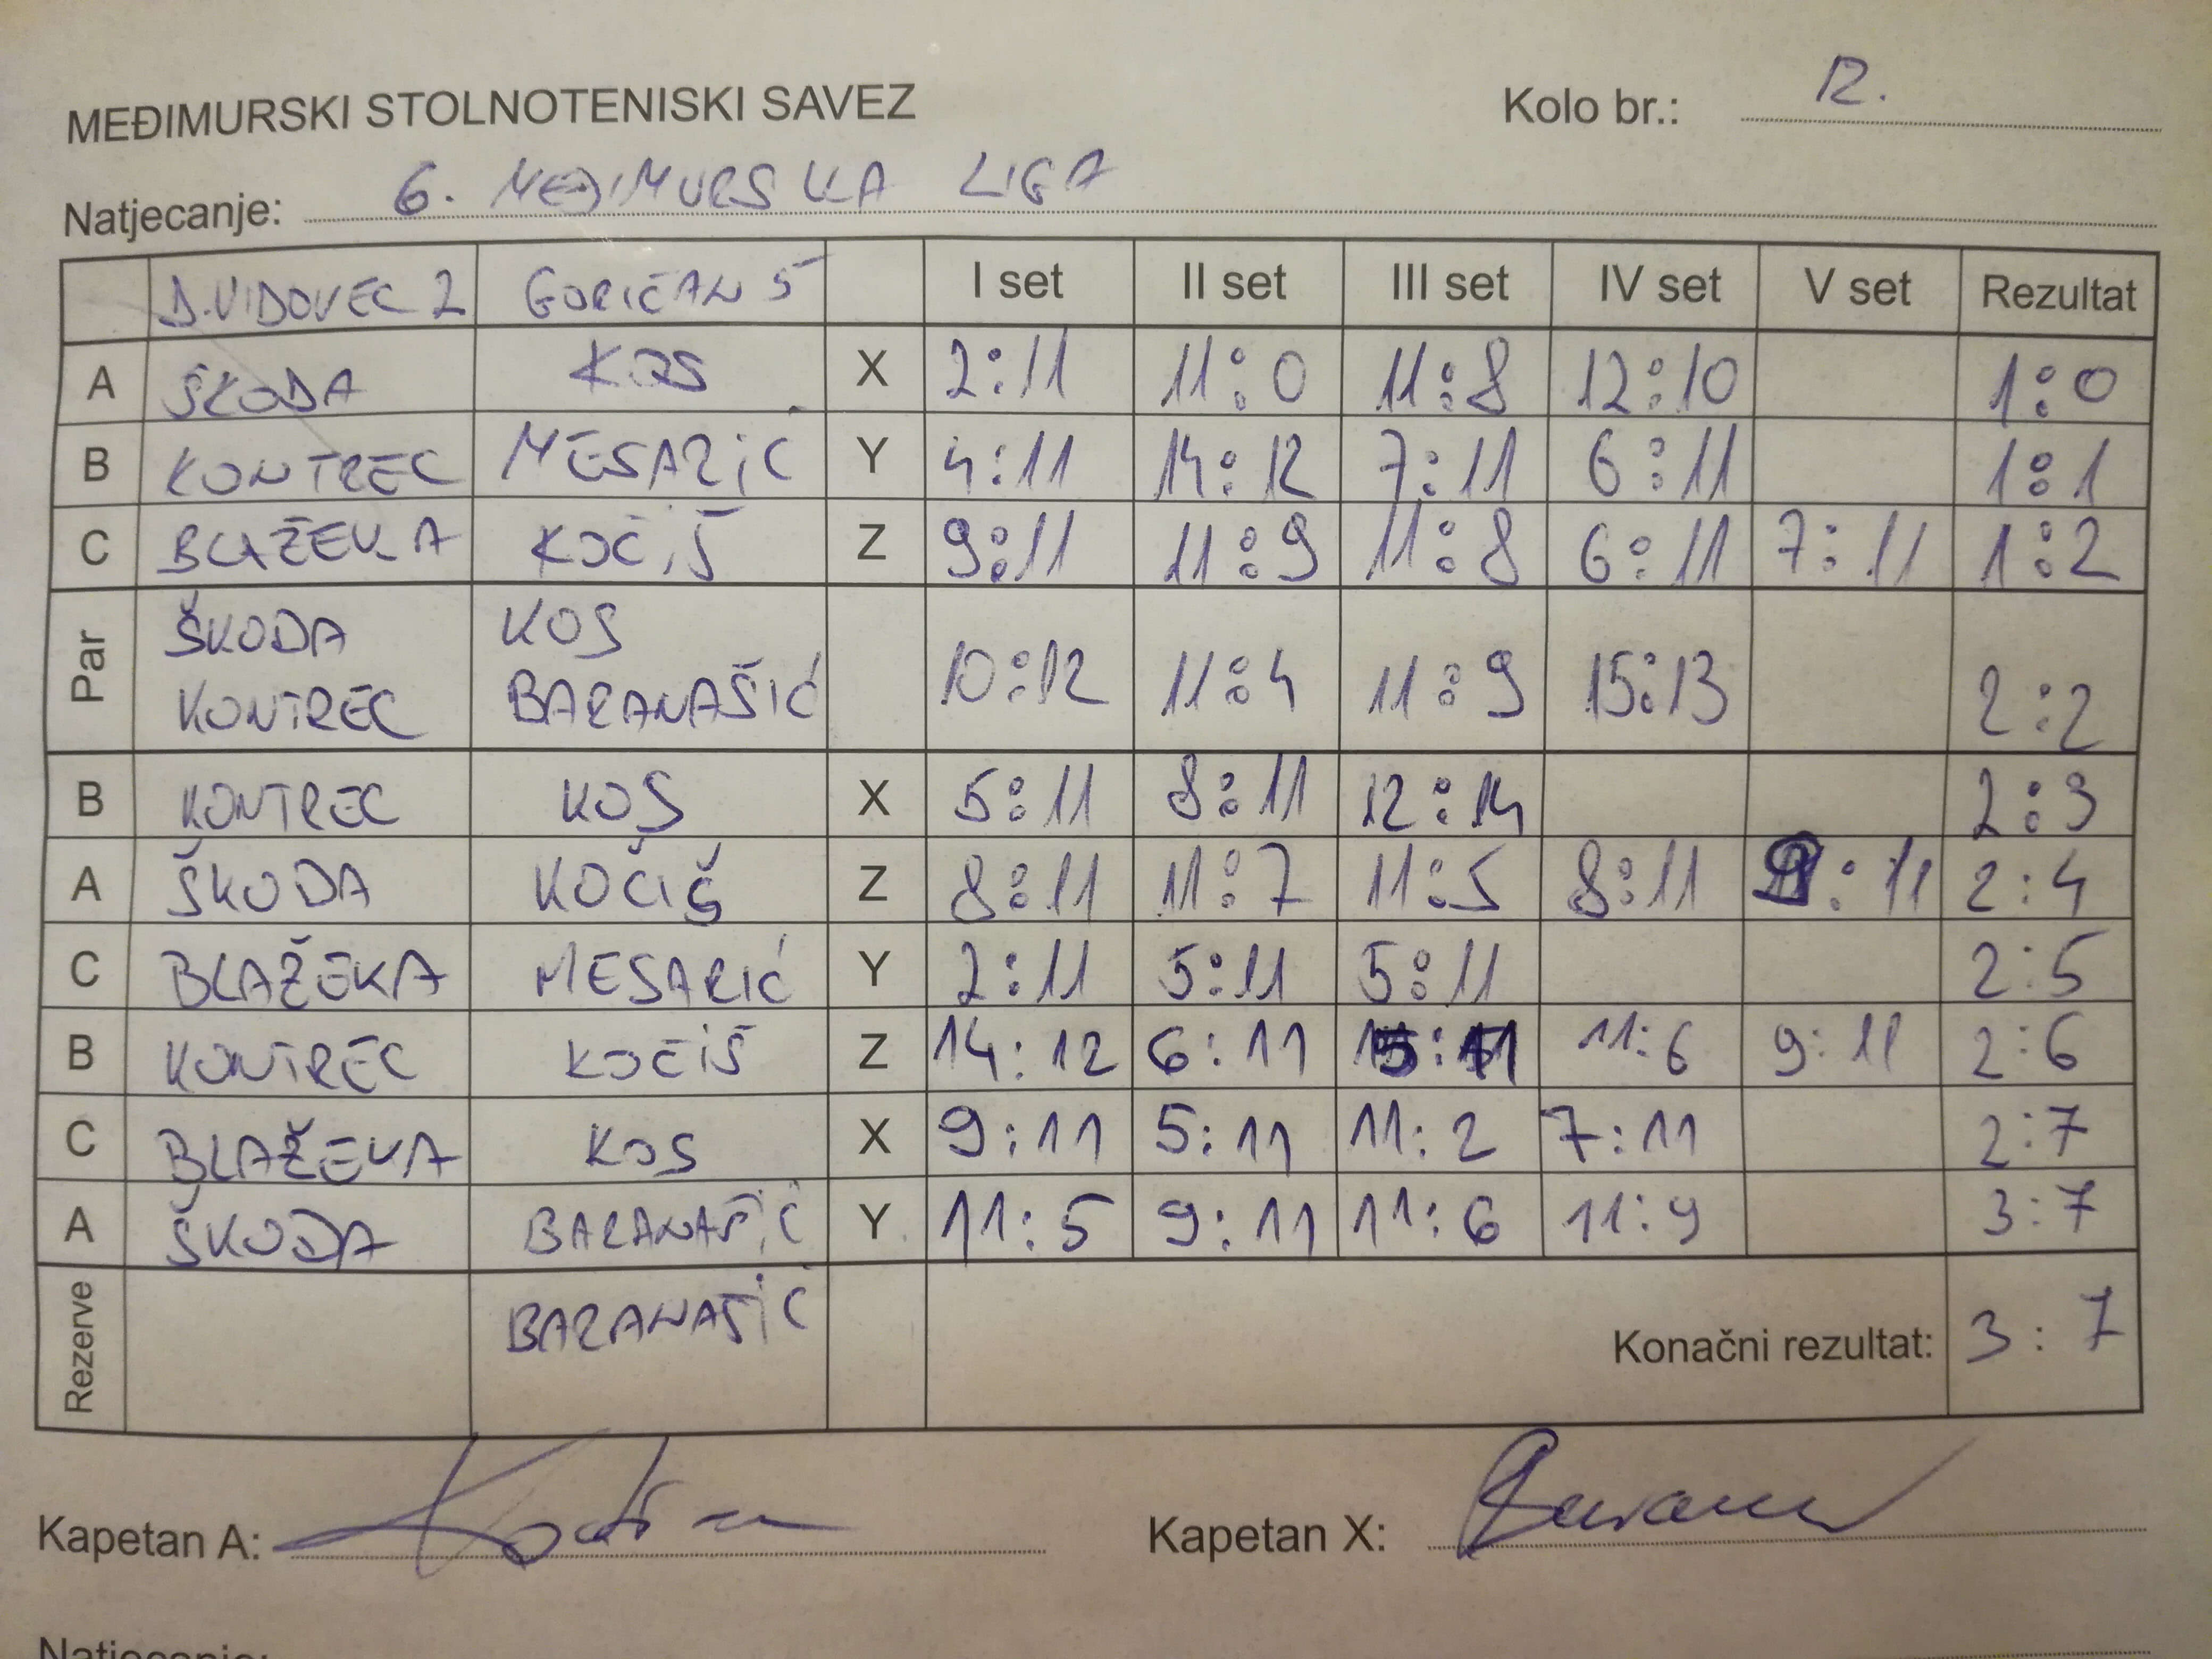 MEĐIMURSKI STOLNOTENISKI SAVEZ Kolo br.: 12.
Natjecanje: 6. MEĐIMURSKA LIGA
D.VIDOVEC 2 GORIČAN 5 I set II set III set IV set V set Rezultat
A ŠKODA KOS X 2:11 11:0 11:8 12:10 1:0
B KONTREC MESARIĆ Y 4:11 14:12 7:11 6:11 1:1
C BLAŽEKA KOČIŠ Z 9:11 11:9 11:8 6:11 7:11 1:2
Par ŠKODA KOS
KONTREC BARANAŠIĆ 10:12 11:4 11:9 15:13 2:2
B KONTREC KOS X 5:11 8:11 12:14 2:3
A ŠKODA KOČIŠ Z 8:11 11:7 11:5 8:11 :11 2:4
C BLAŽEKA MESARIĆ Y 2:11 5:11 5:11 2:5
B KONTREC KOČIŠ Z 14:12 6:11 11:6 9:11 2:6
C BLAŽEKA KOS X 9:11 5:11 11:2 7:11 2:7
A ŠKODA BARANAŠIĆ Y 11:5 9:11 11:6 11:9 3:7
Rezerve BARANAŠIĆ Konačni rezultat: 3:7
Kapetan A: Kapetan X:
Natjecanje: